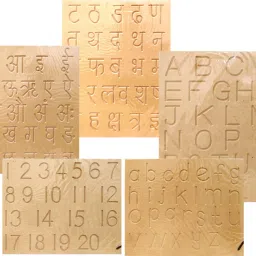 आ इ
ऊ ऋ ए ऐ
ओ औ अं अः
ख ग घ ङ
ट ठ ड ढ ण
त थ द ध न
फ ब भ म
र ल व श ष
ह क्ष त्र ज्ञ
A B C
E F G H
J K L
N O P
a b c d e f g
h i j k l m n
o p q r s t u
v w x y z
1 2 3 4 5 6 7
8 9 10 11 12
13 14 15 16
17 18 19 20